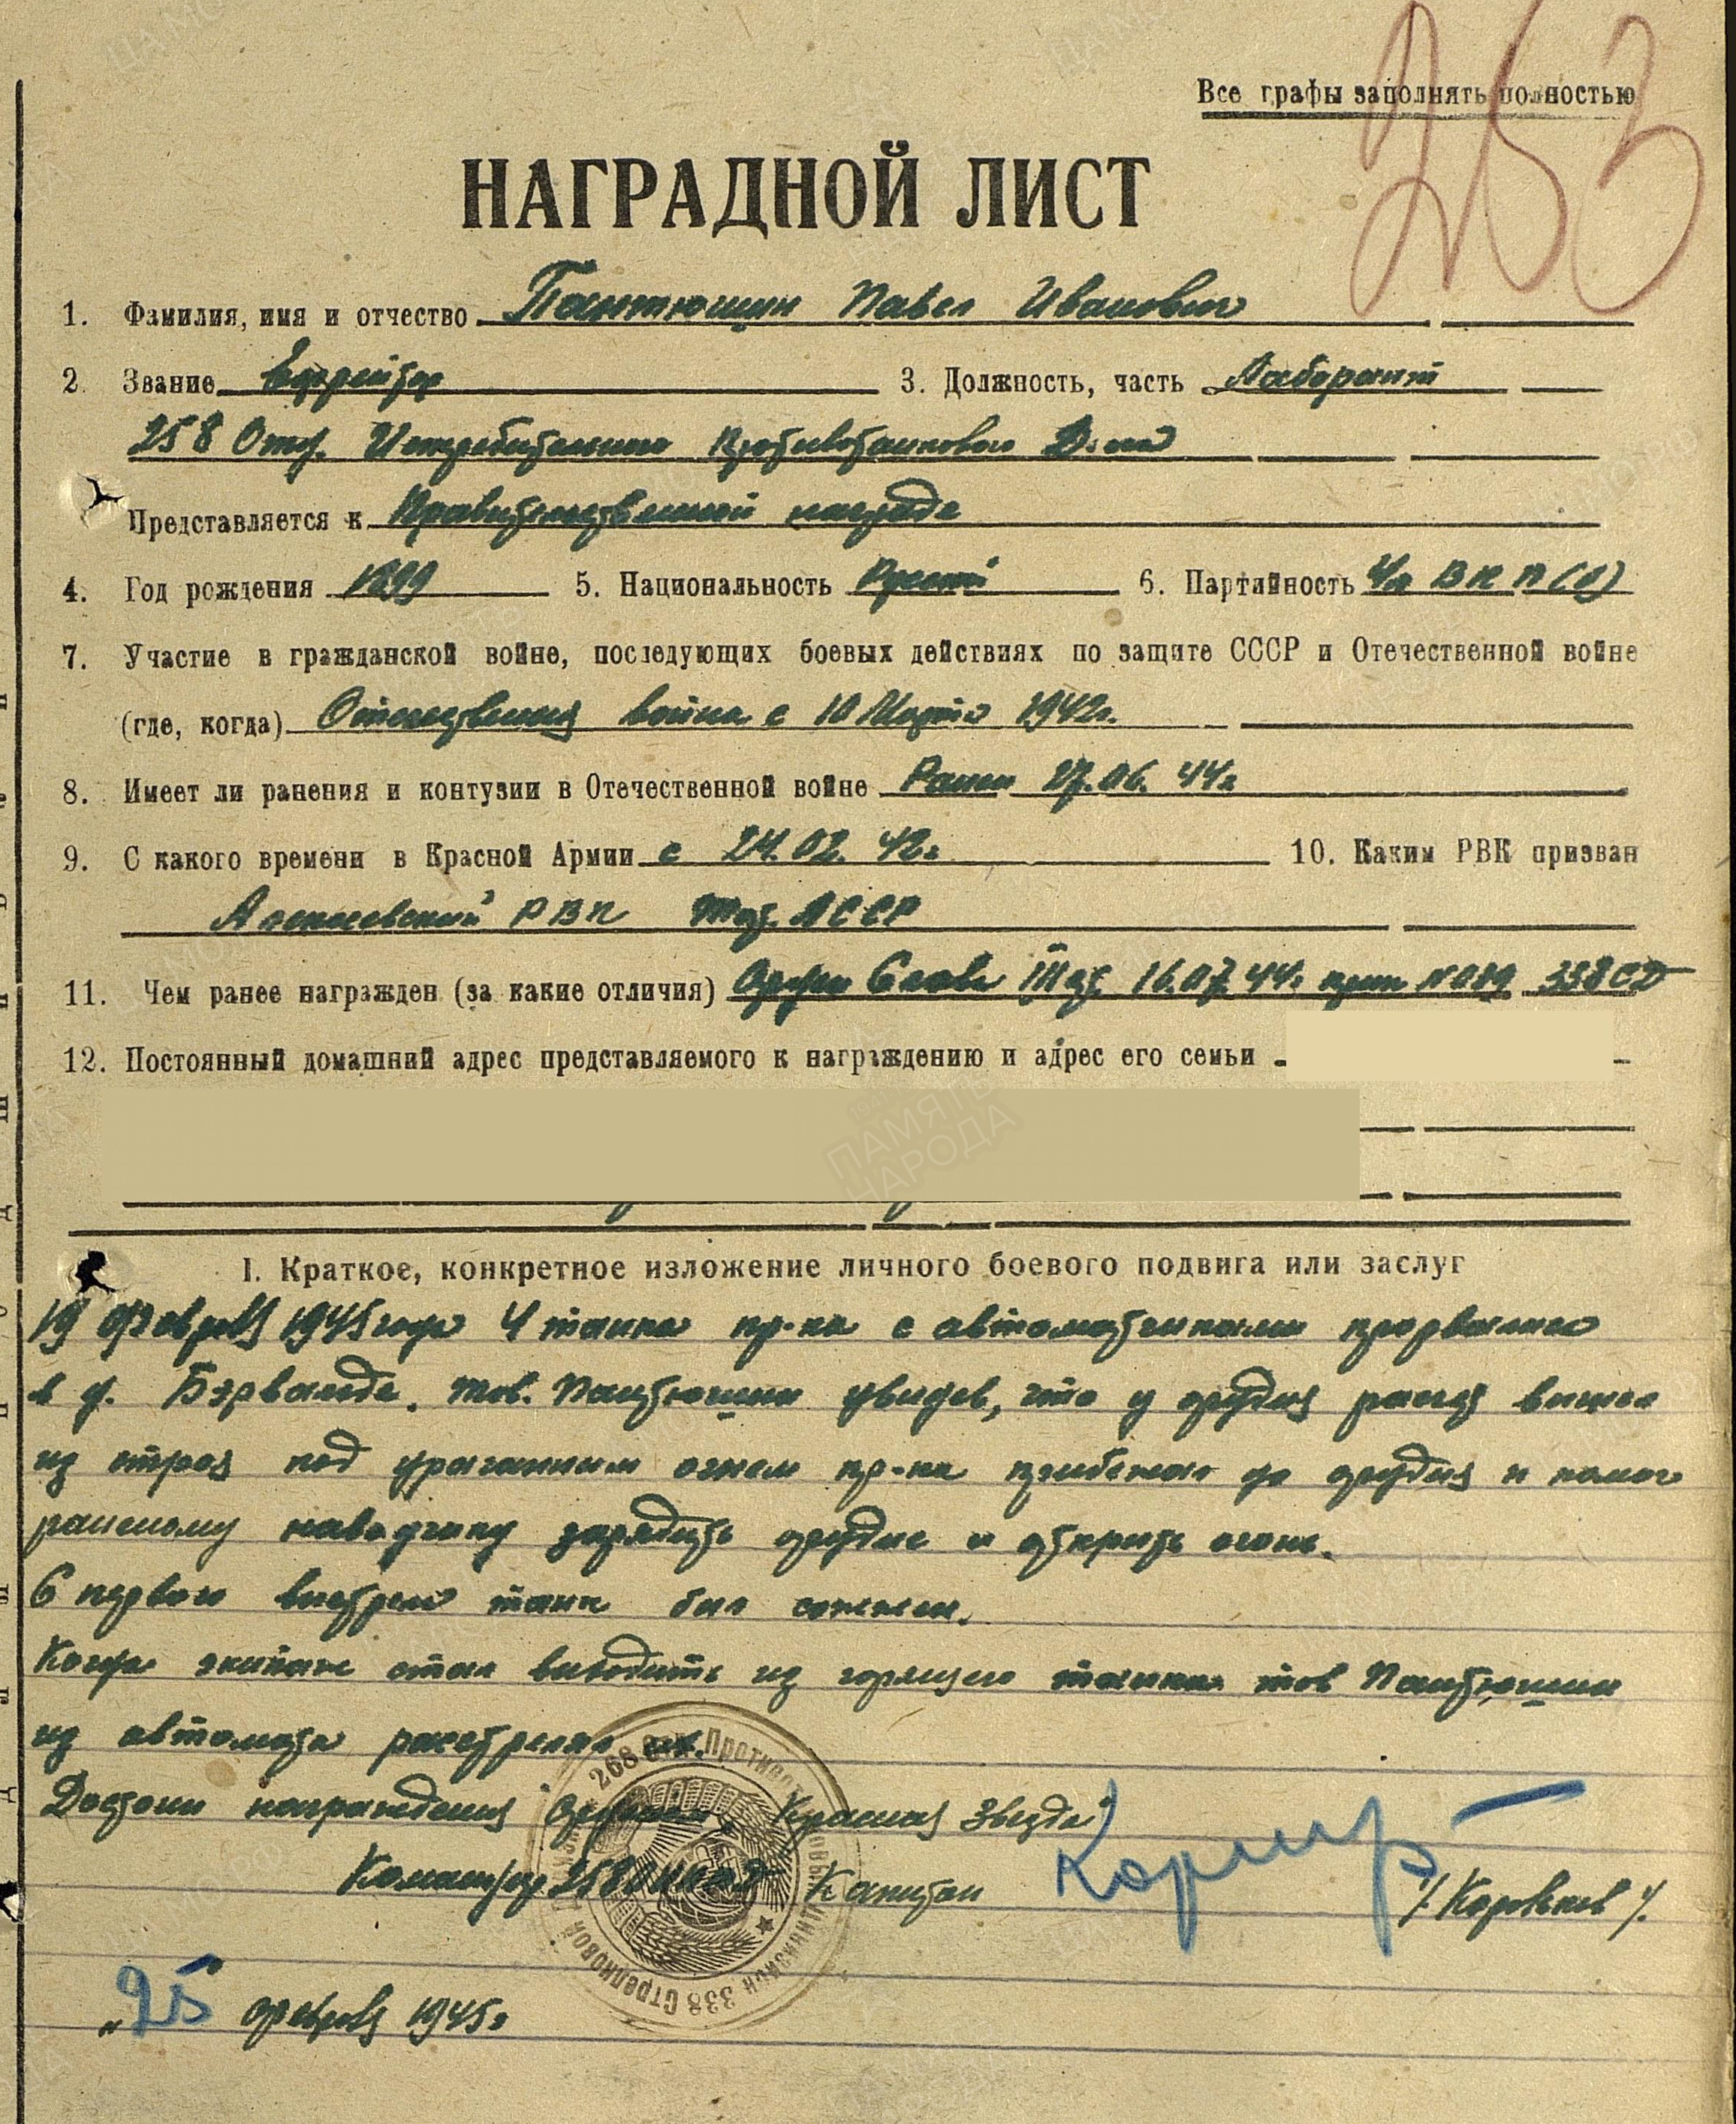 253
Все графы заполнять полностью
НАГРАДНОЙ ЛИСТ
1. Фамилия, имя и отчество Пантюшин Павел Иванович
2. Звание Ефрейтор 3. Должность, часть Лаборант
258 Отд. Истребительного Противотанкового Д-на
Представляется к Правительственной награде
4. Год рождения 1899 5. Национальность Русский 6. Партийность Чл ВКП(б)
7. Участие в гражданской войне, последующих боевых действиях по защите СССР и Отечественной войне
(где, когда) Отечественная война с 10 Марта 1942г.
8. Имеет ли ранения и контузии в Отечественной войне Ранен 27.06.44г
9. С какого времени в Красной Армии с 24.02.42г 10. Каким РВК призван
Алексеевский РВК Тат. АССР
11. Чем ранее награжден (за какие отличия) Орден Слава III ст. 16.07.44г прик N 089 338 СД
12. Постоянный домашний адрес представляемого к награждению и адрес его семьи
ПАМЯТЬ
НАРОДА
I. Краткое, конкретное изложение личного боевого подвига или заслуг
19 февраля 1945 года 4 танка пр-ка с автоматчиками прорвались
в д. Бэрвальде. тов. Пантюшин увидев, что у орудия расчет вышел
из строя под ураганным огнем пр-ка прибежал до орудия и помог
раненому наводчику зарядить орудие и открыть огонь.
С первого выстрела танк был сожжен.
Когда экипаж стал выходить из горящего танка тов Пантюшин
из автомата расстрелял их.
Достоин награждения Орденом „Красная Звезда"
Командир 258 ОИПТД Капитан /Коровьев/.
268 Отд. Противотанковый Дивизион 338 Стрелковой Дивизии
„25" февраля 1945г